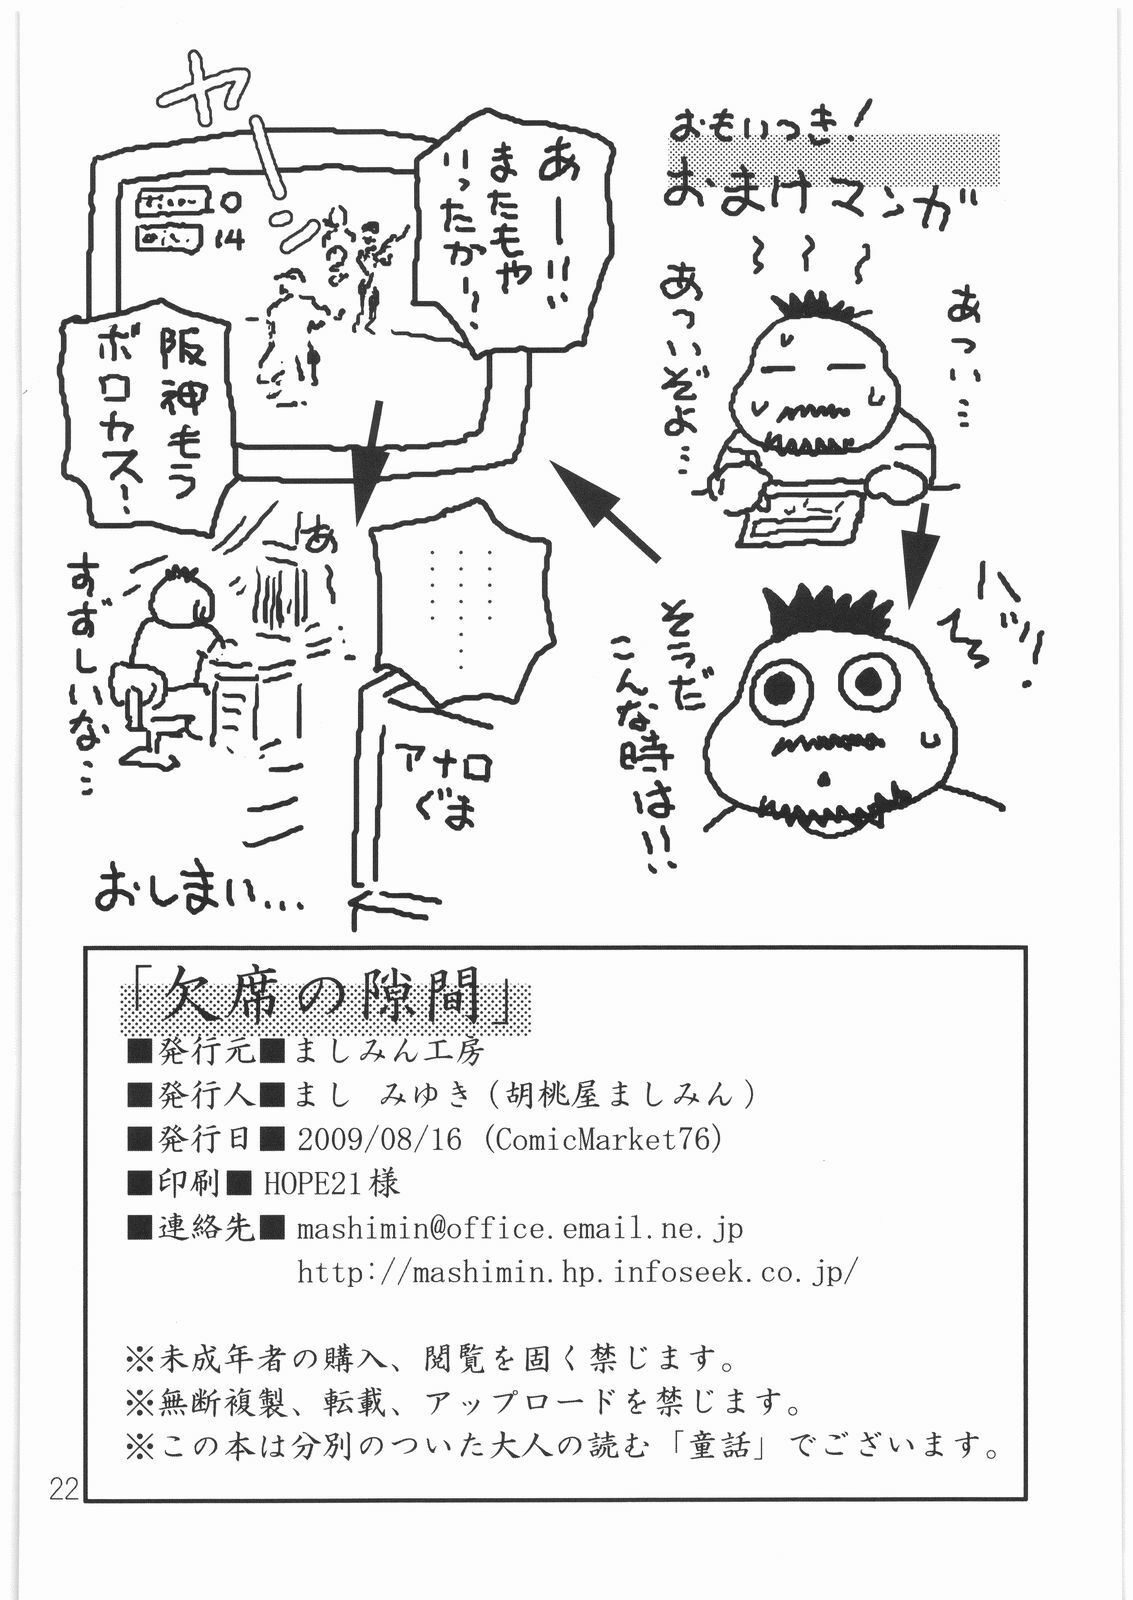 おもいつき！
おまけマンガ
あつい…
あついぞよ…
ハッ！
そうだ
こんな時は！！
カキーン
0
14
あー！！！
またもや
いったかー！
阪神もう
ボロカス！
あ〜
すずしいな…
アナロ
ぐま
おしまい…
「欠席の隙間」
■発行元■ましみん工房
■発行人■まし　みゆき(胡桃屋ましみん)
■発行日■ 2009/08/16 (ComicMarket76)
■印刷■ HOPE21様
■連絡先■ mashimin@office.email.ne.jp
http://mashimin.hp.infoseek.co.jp/
※未成年者の購入、閲覧を固く禁じます。
※無断複製、転載、アップロードを禁じます。
※この本は分別のついた大人の読む「童話」でございます。
22